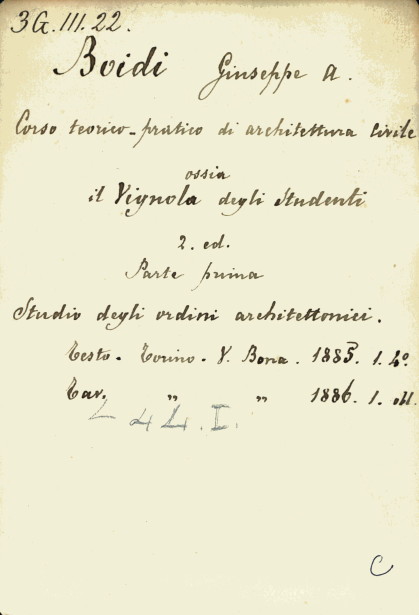 3G.III.22.
Boidi Giuseppe A.
Corso teorico-pratico di architettura Civile
ossia
il Vignola degli Studenti
2. ed.
Parte prima
Studio degli ordini architettonici.
Testo - Torino - V. Bona. 1885. 1. 4º
Tav. „ „ 1886. 1.
44. I.
C